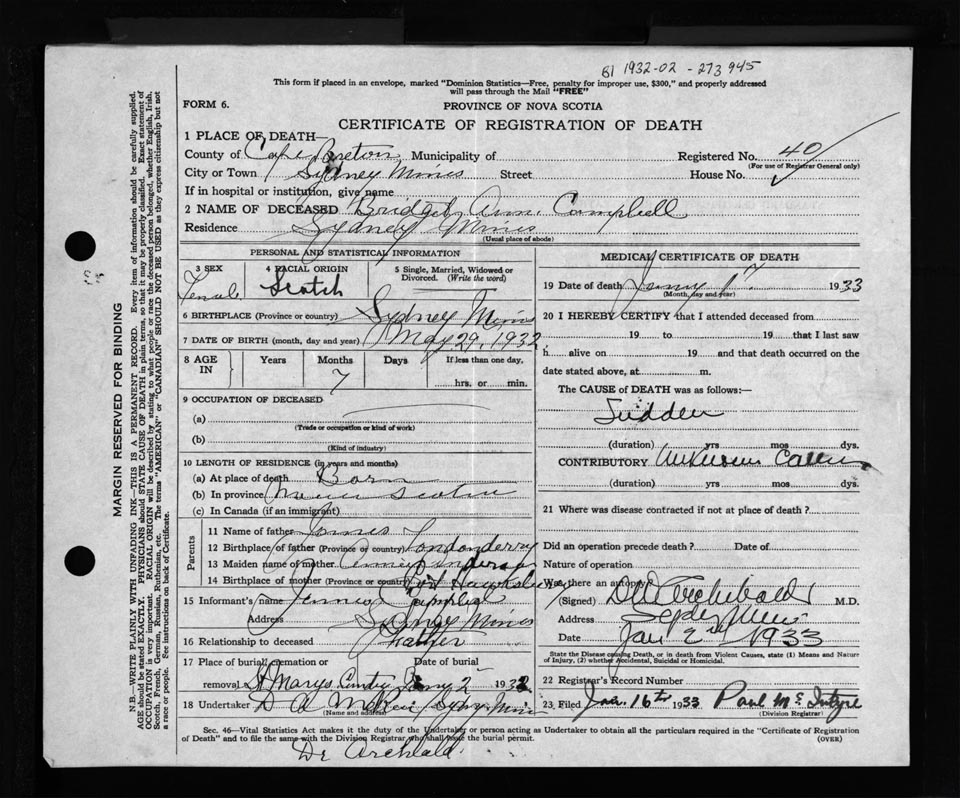 81 1932-02-273945
This form if placed in an envelope, marked "Dominion Statistics—Free, penalty for improper use, $300," and properly addressed
will pass through the Mail "FREE"
FORM 6.
PROVINCE OF NOVA SCOTIA
CERTIFICATE OF REGISTRATION OF DEATH
1 PLACE OF DEATH—
County of Cape Breton Municipality of Registered No. 40
(For use of Registrar General only)
City or Town Sydney Mines Street House No.
If in hospital or institution, give name
2 NAME OF DECEASED Bridget Ann. Campbell
Residence Sydney Mines
(Usual place of abode)
PERSONAL AND STATISTICAL INFORMATION
3 SEX 4 RACIAL ORIGIN 5 Single, Married, Widowed or
Divorced. (Write the word)
Female Scotch
6 BIRTHPLACE (Province or country) Sydney Mines
7 DATE OF BIRTH (month, day and year) May 29, 1932
8 AGE IN Years Months Days If less than one day,
7 hrs. or min.
9 OCCUPATION OF DECEASED
(a)
(Trade or occupation or kind of work)
(b)
(Kind of industry)
10 LENGTH OF RESIDENCE (in years and months)
(a) At place of death Born
(b) In province Nova Scotia
(c) In Canada (if an immigrant)
Parents
11 Name of father James
12 Birthplace of father (Province or country) Londonderry
13 Maiden name of mother Annie
14 Birthplace of mother (Province or country) Port Hawkesbury
15 Informant's name Campbell
Address Sydney Mines
16 Relationship to deceased Father
17 Place of burial, cremation or Date of burial
removal St Marys Jany 2 1932
18 Undertaker D A Sydney Mines
(Name and address)
MEDICAL CERTIFICATE OF DEATH
19 Date of death January 1st 1933
(Month, day and year)
20 I HEREBY CERTIFY that I attended deceased from
19 to 19 that I last saw
h alive on 19 and that death occurred on the
date stated above, at m.
The CAUSE of DEATH was as follows:—
Sudden
(duration) yrs mos dys.
CONTRIBUTORY Unknown Cause
(duration) yrs mos dys.
21 Where was disease contracted if not at place of death?
Did an operation precede death? Date of
Nature of operation
Was there an autopsy
(Signed) Archibald M.D.
Address Sydney Mines
Date Jan 2nd 1933
State the Disease causing Death, or in death from Violent Causes, state (1) Means and Nature
of Injury, (2) whether Accidental, Suicidal or Homicidal.
22 Registrar's Record Number
23 Filed Jan. 16th 1933 Paul McIntyre
(Division Registrar)
Sec. 46—Vital Statistics Act makes it the duty of the Undertaker or person acting as Undertaker to obtain all the particulars required in the "Certificate of Registration
of Death" and to file the same with the Division Registrar who shall issue the burial permit.
(OVER)
Dr Archibald
MARGIN RESERVED FOR BINDING
N.B.—WRITE PLAINLY WITH UNFADING INK—THIS IS A PERMANENT RECORD. Every item of information should be carefully supplied.
AGE should be stated EXACTLY. PHYSICIANS should STATE CAUSE OF DEATH in plain terms, so that it may be properly classified. Exact statement of
OCCUPATION is very important. RACIAL ORIGIN will be described by stating to what people or race the deceased person belonged, whether English, Irish,
Scotch, French, German, Russian, Ruthenian, etc. The terms "AMERICAN" or "CANADIAN" SHOULD NOT BE USED as they express citizenship but not
a race or people. See instructions on back of Certificate.